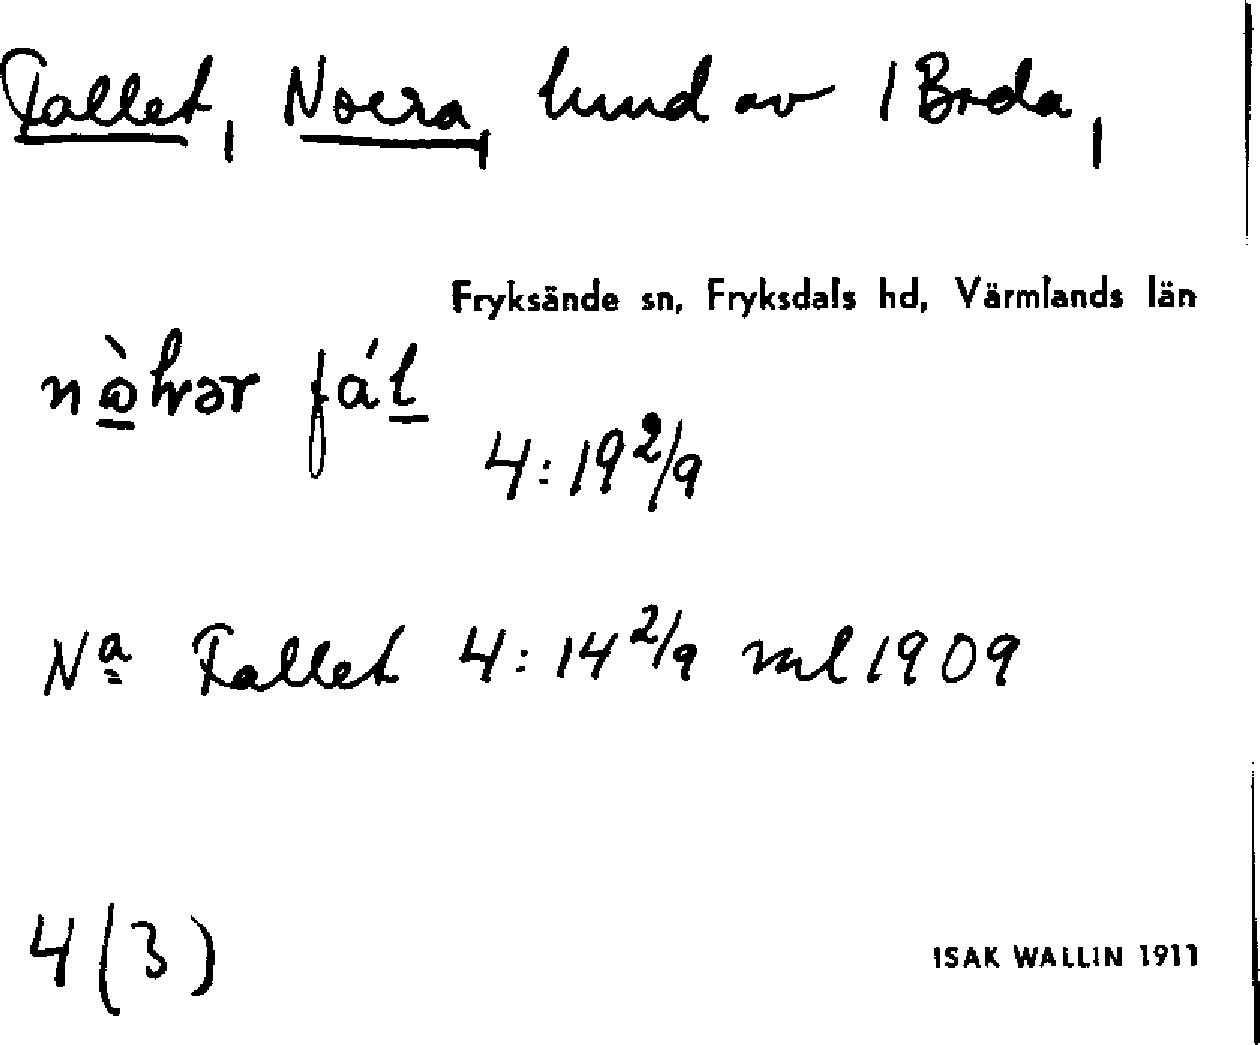 Fallet, Norra, hmd av 1 Breda,
Fryksände sn, Fryksdals hd, Värmlands län
fál
4:19 2/9
Na Fallet 4:14 2/9 ml 1909
4(3)
ISAK WALLIN 1911